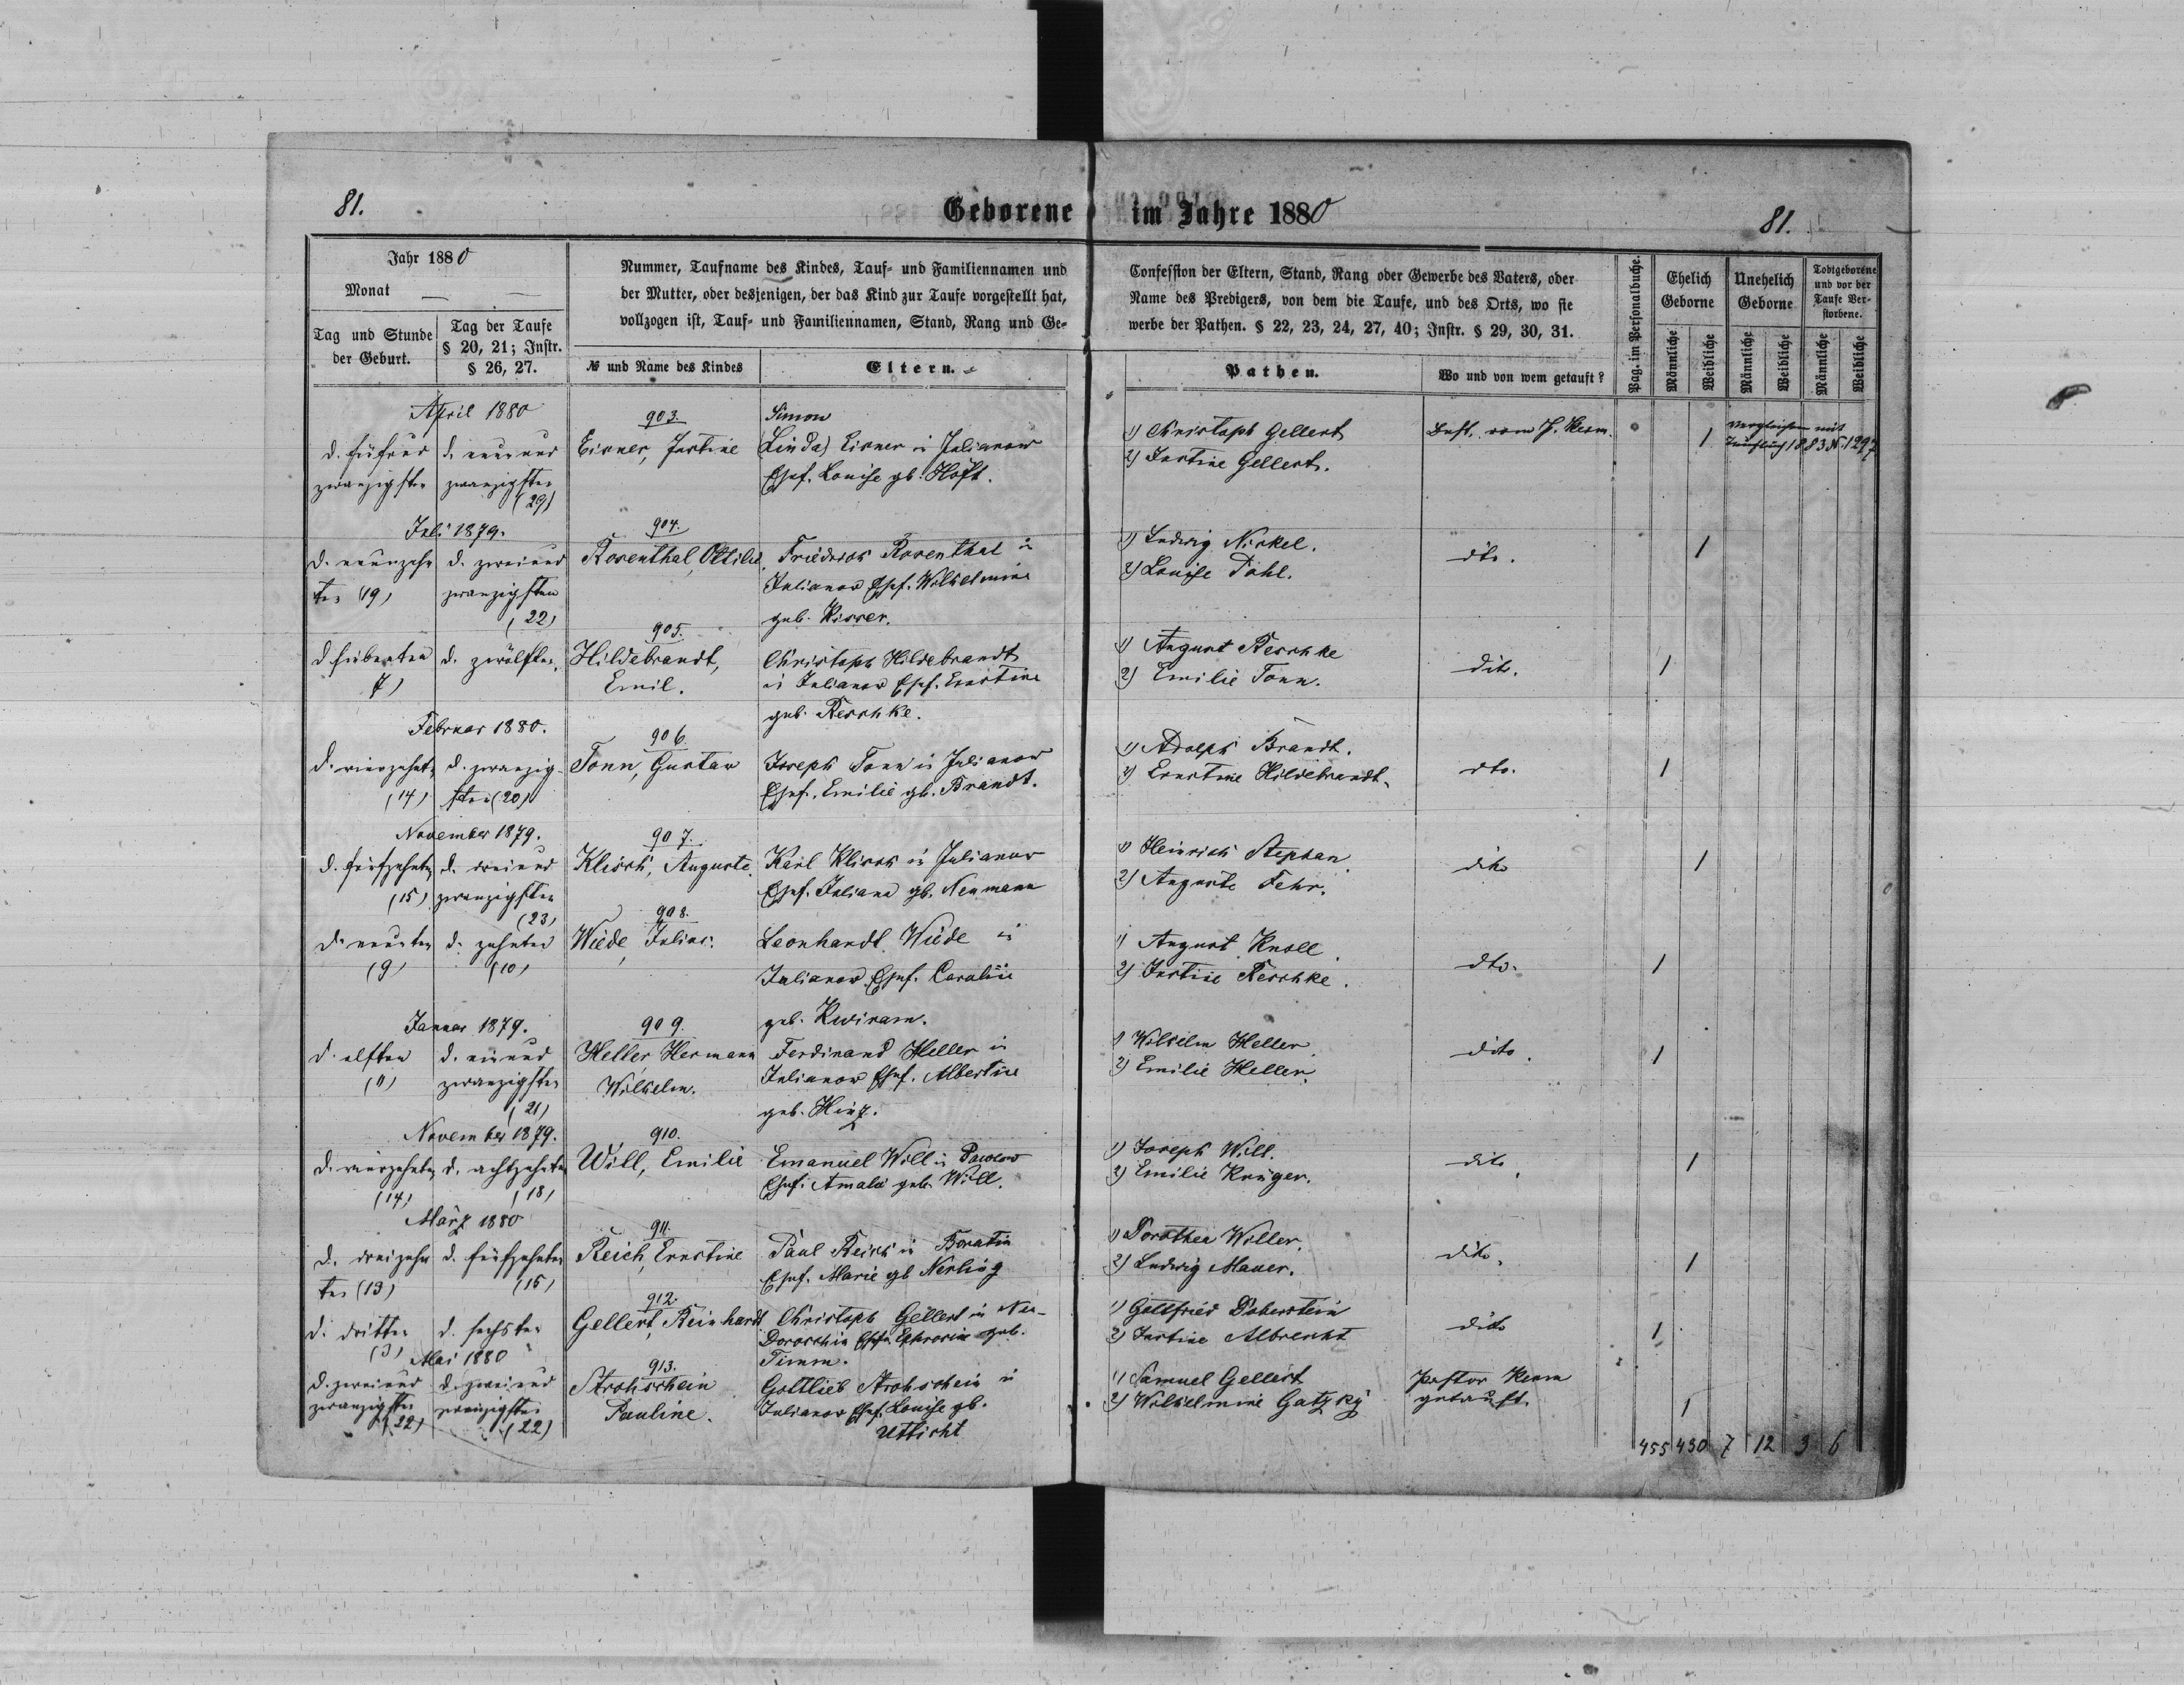 81.
Geborene im Jahre 1880
81.
Jahr 1880
Monat
Tag und Stunde der Geburt.
Tag der Taufe § 20, 21; Instr. § 26, 27.
Nummer, Taufname des Kindes, Tauf- und Familiennamen und
der Mutter, oder desjenigen, der das Kind zur Taufe vorgestellt hat,
vollzogen ist, Tauf- und Familiennamen, Stand, Rang und Ge-
№ und Name des Kindes
Eltern.
Confession der Eltern, Stand, Rang oder Gewerbe des Vaters, oder
Name des Predigers, von dem die Taufe, und des Orts, wo sie
werbe der Pathen. § 22, 23, 24, 27, 40; Instr. § 29, 30, 31.
Pathen.
Wo und von wem getauft?
Pag. im Personalbuche.
Ehelich Geborne
Unehelich Geborne
Todtgeborene und vor der Taufe Verstorbene.
Männliche
Weibliche
Männliche
Weibliche
Männliche
Weibliche
April 1880
903.
Simon
d. fünfund d. neunund Eisner, Justine (Linda) Eisner in Julianow
zwanzigsten zwanzigsten Ehef. Louise gb. Höft.
(29)
1) Christoph Gellert
2) Justine Gellert.
1
vergleichen mit
Taufbuch 1883 № 1297
Juli 1879.
904.
d. neunzehn d. zweiund Rosenthal, Ottilie. Friedrich Rosenthal in
ten (19) zwanzigsten Julianow Ehef. Wilhelmine
(22) geb. Kisser.
1) Ludwig Nickel.
2) Louise Pohl.
dto.
1
905.
d. siebenten d. zwölften. Hildebrandt, Christoph Hildebrandt
7) Emil. in Julianow Ehef. Ernstine
geb. Reschke.
1) August Reschke
2) Emilie Tonn.
dito.
1
Februar 1880.
906.
d. vierzehnt. d. zwanzig- Tonn, Gustav Joseph Tonn in Julianow
(14) sten (20) Ehef. Emilie gb. Brandt.
1) Adolph Brandt.
2) Ernstine Hildebrandt.
dto.
1
November 1879.
907.
d. fünfzehnten d. dreiund Klisch, Auguste. Karl Klisch in Julianow
(15) zwanzigsten Ehef. Juliana gb. Neumann
(23)
1) Heinrich Stephan
2) Auguste Fehr.
dito
1
908.
d. neunten d. zehnten Wiede, Julius. Leonhardt Wiede in
(9) (10) Julianow Ehef. Caroline
geb. Kwiram.
1) August Knoll.
2) Justine Reschke.
dto.
1
Januar 1879.
909.
d. elften d. einund Heller, Hermann Ferdinand Heller in
(11) zwanzigsten Wilhelm. Julianow Ehef. Albertine
(21) geb. Hinz.
1) Wilhelm Heller
2) Emilie Heller.
dito.
1
November 1879.
910.
d. vierzehnten d. achtzehnten Will, Emilie Emanuel Will in
(14) (18) Ehef. Amalie geb. Will.
1) Joseph Will.
2) Emilie Krüger.
dito
1
März 1880
911.
d. dreizehn d. fünfzehnten Reich, Ernstine Paul Reich in Boratin
ten (13) (15) Ehef. Marie gb Nerling
1) Dorothea Woller.
2) Ludwig Mauer.
dito.
1
912.
d. dritten d. sechsten Gellert, Reinhardt Christoph Gellert in Neu-
(3) Doroschin Ehefr. Ephrosine geb.
Timm.
1) Gottfried Doberstein
2) Justine Albrecht
dito
1
Mai 1880
913.
d. zweiund d. zweiund Strohschein Gottlieb Strohschein in
zwanzigsten zwanzigsten Pauline. Julianow Ehef. Louise gb.
(22) (22) Utticht
1) Samuel Gellert
2) Wilhelmine Gatzky
Pastor Kerm
getauft.
1
455 430 7 12 3 6